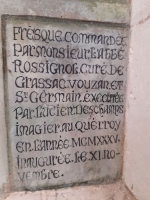 FRESQUE COMMANDÉE
PAR MONSIEUR L'ABBÉ
ROSSIGNOL CURÉ DE
GRASSAC VOUZAN ET
ST GERMAIN EXECUTÉE
PAR LUCIEN DESCHAMPS
IMAGIER AU QUEROY
EN L'ANNÉE MCMXXXV
INAUGURÉE LE XI NO
VEMBRE.